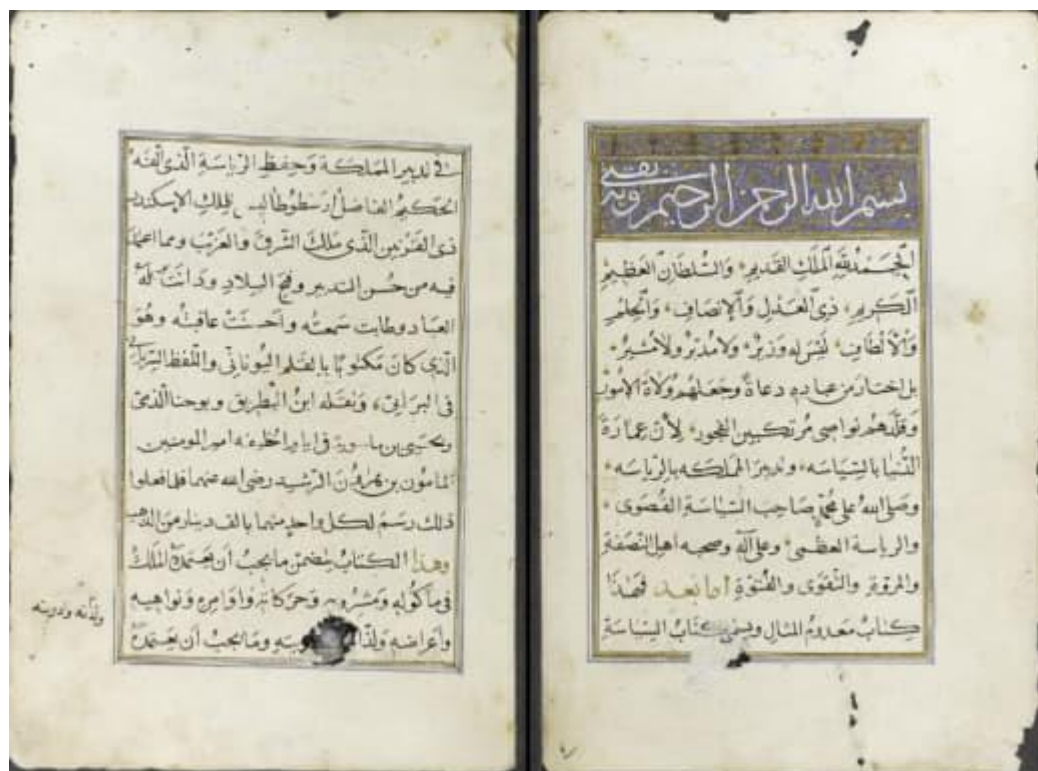 بسم الله الرحمن الرحيم وبه نقتي
الحمد لله الملك القديم والسلطان العظيم
الكريم ذي العدل والإنصاف والحلم
والألطاف ليس له وزير ولا مدبر ولا مشير
بل اختار من عباده دعاة وجعلهم ولاة الأمور
وقلدهم نواصي مرتكبين الفجور لأن عمارة
الدنيا بالسياسه وتدبير المملكه بالرياسه
وصلى الله على محمد صاحب السياسة القصوى
والرياسة العظمى وعلى آله وصحبه أهل النصفة
والمروة والتقوى والفتوة أما بعد فهذا
كتاب معدوم المثال ويسمى كتاب السياسة
في تدبير المملكة وحفظ الرياسة الذي ألفه
الحكيم الفاضل أرسطوطاليس للملك الإسكندر
ذي القرنين الذي ملك الشرق والغرب ومما اعمل
فيه من حسن التدبير وفتح البلاد ودانت له
العباد وطابت سمعته وأحسنت عاقبته وهو
الذي كان مكتوبا بالقلم اليوناني واللفظ السرياني
في البرابي ونقله ابن البطريق ويوحنا الذمي
ويحيى بن ماسويه في ايام الخليفه امير المومنين
المامون بن هرون الرشيد رضي الله عنهما فلما فعلوا
ذلك رسم لكل واحد منهما بالف دينار من الذهب
وهذا الكتاب يتضمن ما يجب أن يعتمده الملك
في مأكوله ومشروبه وحركاته واوامره ونواهيه
وأعراضه وما يجب أن يعتمده
ولذاته ودربته